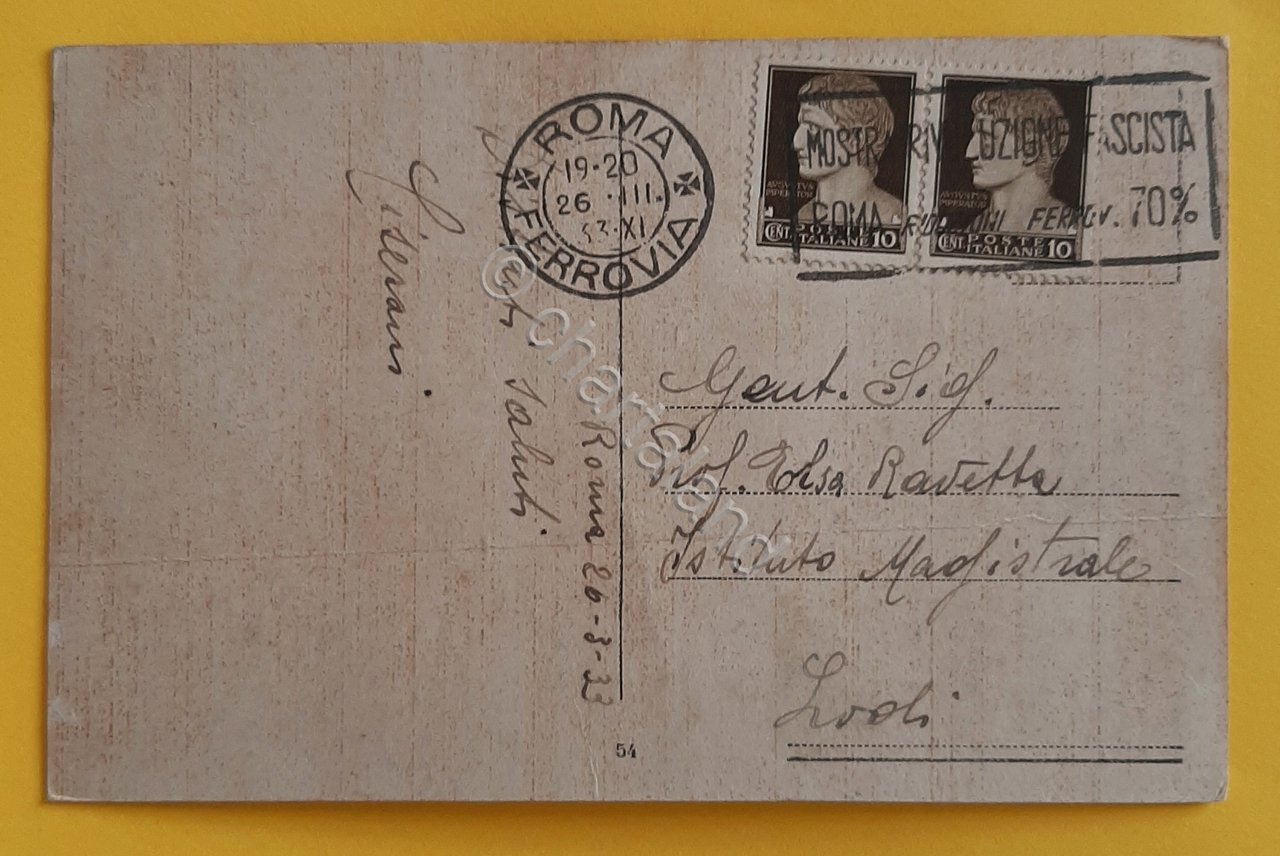 ROMA
19-20
26 · III.
33·XI
FERROVIA
MOSTR RIV UZIONE FASCISTA
ROMA RIDUZIONI FERROV. 70%
AVGVSTVS
IMPERATOR
CENT. POSTE
ITALIANE 10
AVGVSTVS
IMPERATOR
CENT. POSTE
ITALIANE 10
Gent. Sig.
Prof. Elsa Ravetta
Istituto Magistrale
Lodi
Roma 26-3-33
Saluti
54
© chartaland